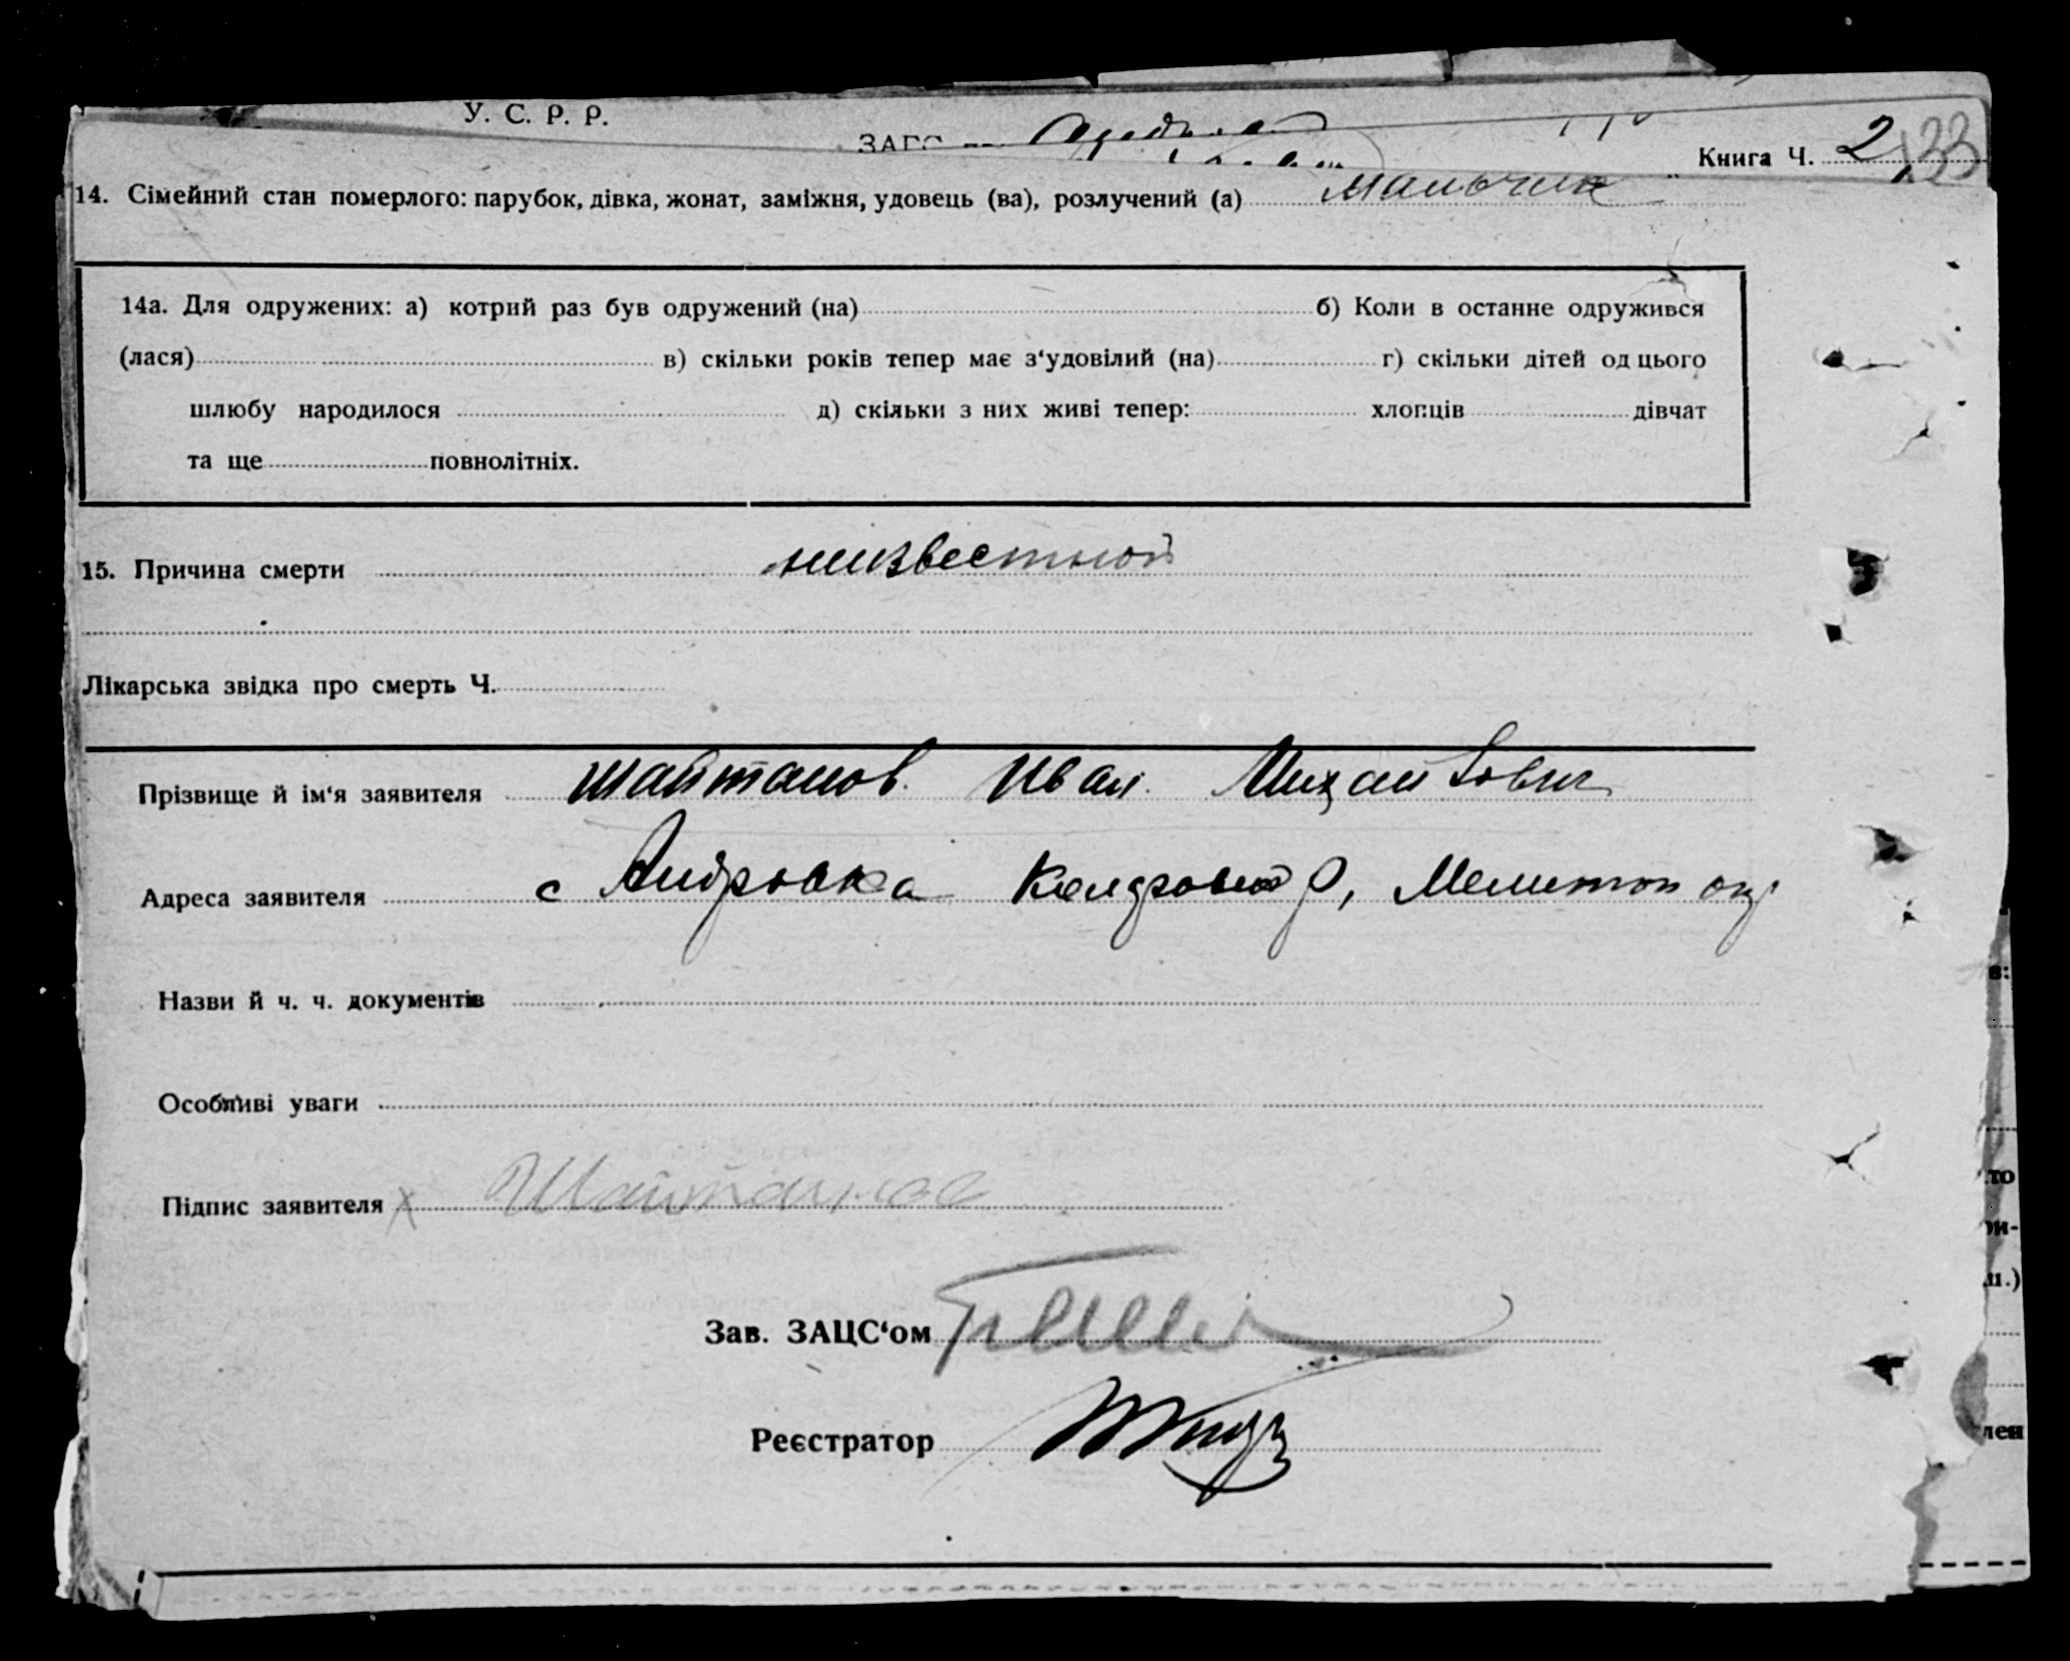 У. С. Р. Р.
Книга Ч. 2
14. Сімейний стан померлого: парубок, дівка, жонат, заміжня, удовець (ва), розлучений (а) мальчик
14а. Для одружених: а) котрий раз був одружений (на) б) Коли в останне одружився
(лася) в) скільки років тепер має з‘удовілий (на) г) скільки дітей од цього
шлюбу народилося д) скільки з них живі тепер: хлопців дівчат
та ще повнолітніх.
15. Причина смерти неизвестной
Лікарська звідка про смерть Ч.
Прізвище й ім‘я заявителя Шайтанов Иван Михайлович
Адреса заявителя с Андровка р, Мелитоп окр
Назви й ч. ч. документів
Особливі уваги
Підпис заявителя Шайтанов
Зав. ЗАЦС‘ом
Реєстратор